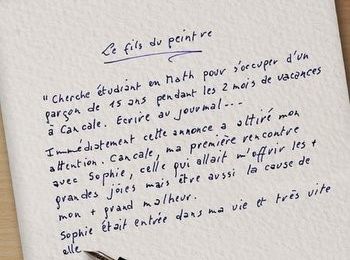 Le fils du peintre
"Cherche étudiant en Math pour s'occuper d'un
garçon de 15 ans pendant les 2 mois de vacances
à Cancale. Ecrire au journal---
Immédiatement cette annonce a attiré mon
attention. Cancale, ma première rencontre
avec Sophie, celle qui allait m'offrir les +
grandes joies mais être aussi la cause de
mon + grand malheur.
Sophie était entrée dans ma vie et très vite
elle